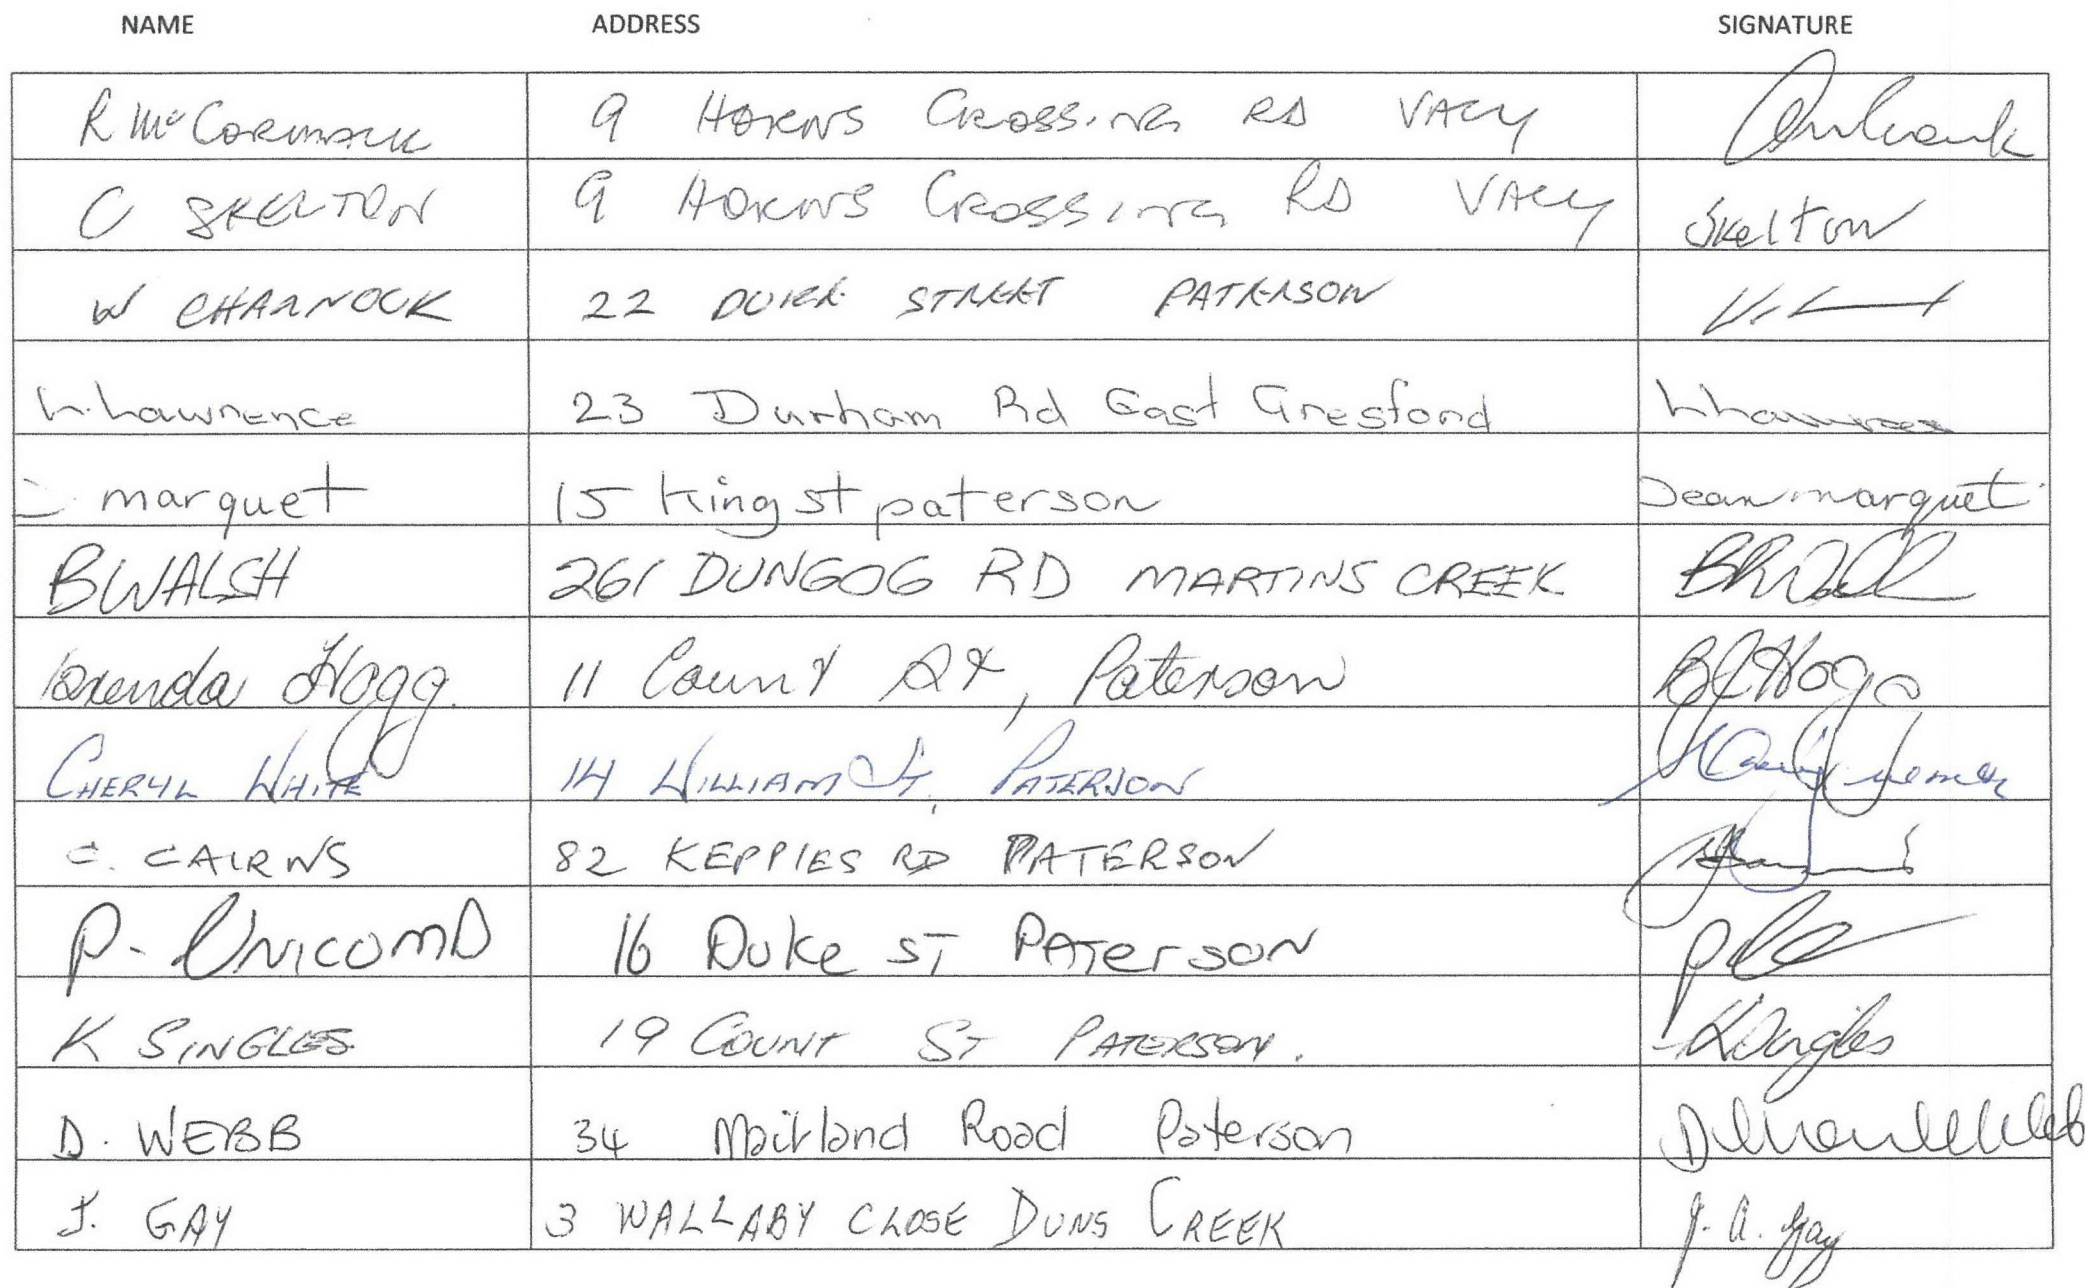 NAME ADDRESS SIGNATURE
R McCORMACK 9 HORNS CROSSING RD VACY
C SKELTON 9 HORNS CROSSING RD VACY Skelton
W CHARNOCK 22 DUKE STREET PATERSON
L. Lawrence 23 Durham Rd East Gresford
marquet 15 King st paterson Dean marquet
B WALSH 261 DUNGOG RD MARTINS CREEK
Brenda Hogg. 11 Count St, Paterson B Hogg
CHERYL WHITE 14 WILLIAM St, PATERSON
C. CAIRNS 82 KEPPIES RD PATERSON
P. UNICOMB 16 Duke ST PATerson
K SINGLES 19 COUNT ST PATERSON. K Singles
D. WEBB 34 Maitland Road Paterson
J. GAY 3 WALLABY CLOSE DUNS CREEK J. A. Gay